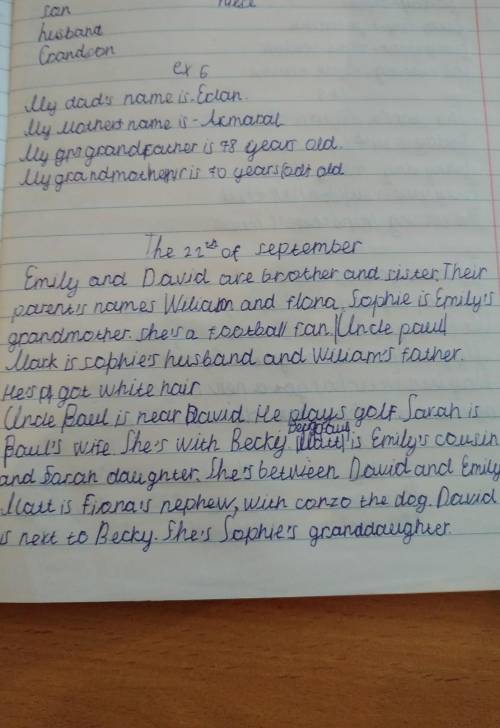 son
husband
Grandson
ex 6
My dad's name is Edan.
My Mother's name is - Akmaral
My grandfather is 78 years old.
My grandmother is 70 years old
The 22nd of september
Emily and David are brother and sister. Their
parent's names William and flona. Sophie is Emily's
grandmother. she's a football fan. Uncle paul
Mark is sophie's husband and William's father.
He's got white hair
Uncle Paul is near David. He plays golf. Sarah is
Paul's wife. She's with Becky is Emily's cousin
and Sarah daughter. She's between David and Emily
Matt is Fiona's nephew, with conzo the dog. David
is next to Becky. She's Sophie's granddaughter.